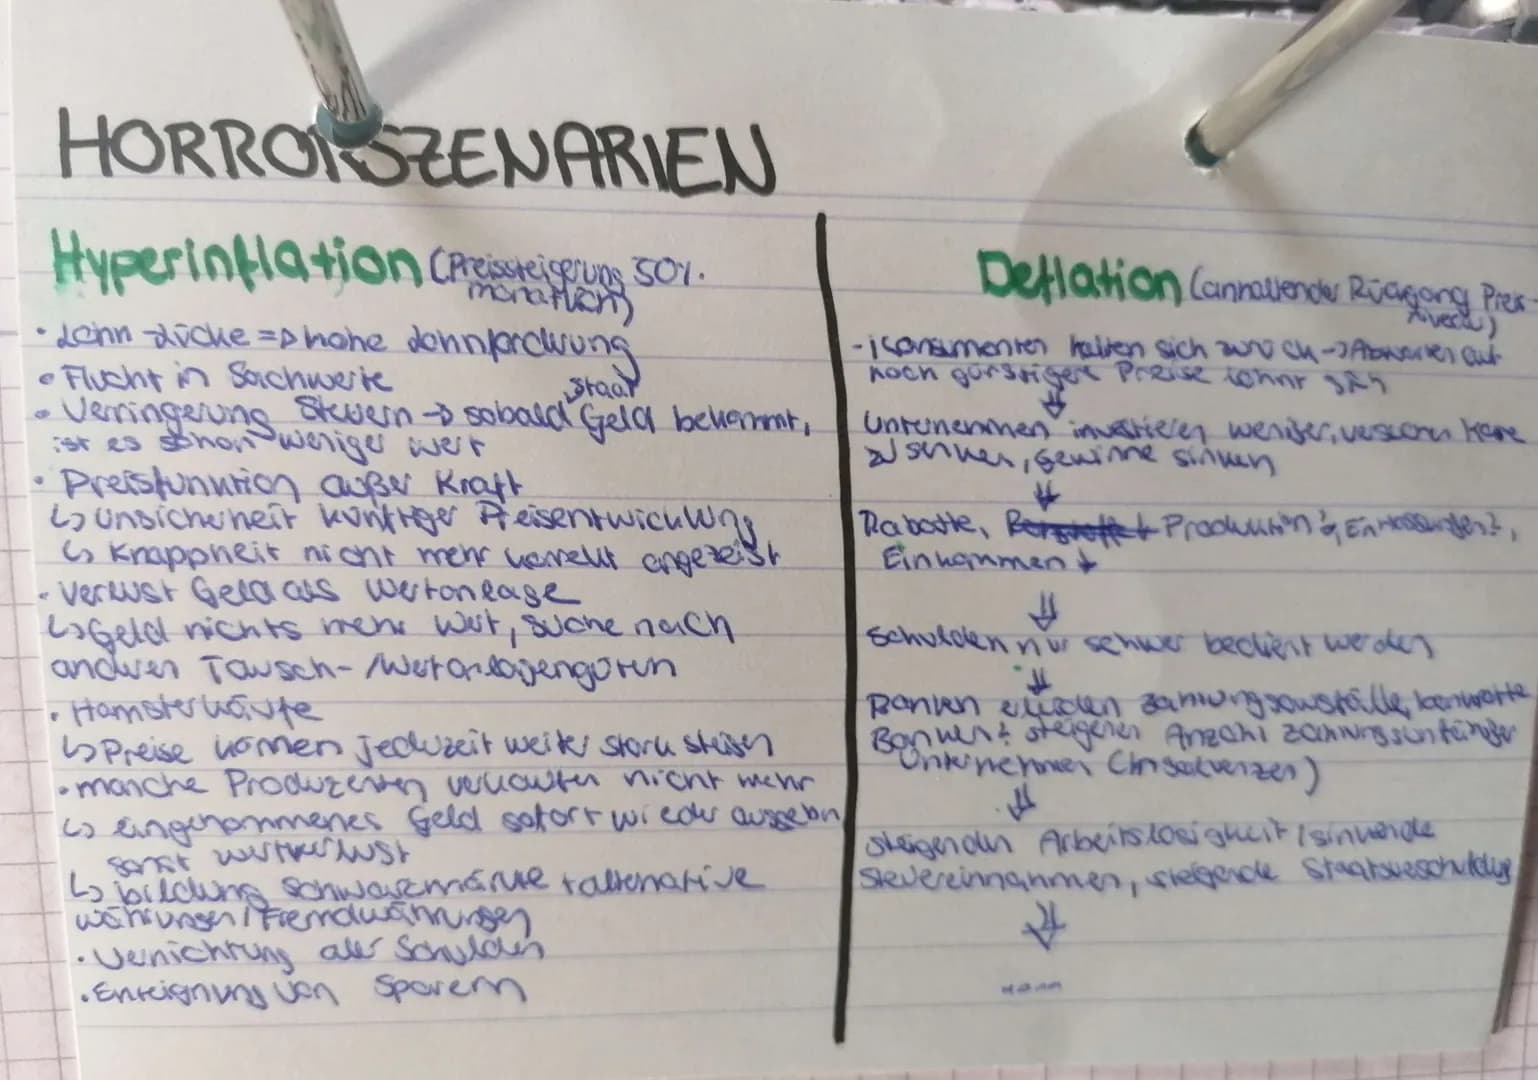 HORRORSZENARIEN
Hyperinflation (Preissteigerung 50%.
monatlich)
• Lohn-Lücke => hohe Lohnforderung
• Flucht in Sachwerte
Staat
• Verringerung Steuern -> sobald Geld bekommt,
ist es schon weniger wert
• Preisfunktion außer Kraft
↳ Unsicherheit künftiger Preisentwicklung
↳ Knappheit nicht mehr korrekt angezeigt
• Verlust Geld als Wertanlage
↳ Geld nichts mehr wert, suche nach
anderen Tausch-/Wertanlagengütern
• Hamsterkäufe
↳ Preise können jederzeit weiter stark steigen
• manche Produzenten verkaufen nicht mehr
↳ eingenommenes Geld sofort wieder ausgeben
sonst wertverlust
↳ bildung schwarzmärkte + alternative
währungen/Fremdwährungen
• Vernichtung aller Schulden
• Enteignung von Sparern
Deflation (anhaltender Rückgang Preis-
niveau)
- Konsumenten halten sich zurück -> Abwarten auf
noch günstigere Preise lohnt sich
⇓
Unternehmen investieren weniger, Ware
zu senken, Gewinne sinken
⇓
Rabatte, Produktion ↓, Entlassungen ↑,
Einkommen ↓
⇓
Schulden nur schwer bedient werden
⇓
Banken Zahlungsausfälle, bankrotte
Banken ↑ steigenen Anzahl zahlungsunfähiger
Unternehmen (Insolvenzen)
⇓
steigenden Arbeitslosigkeit / sinkende
steuereinnahmen, steigende Staatsverschuldung
⇓